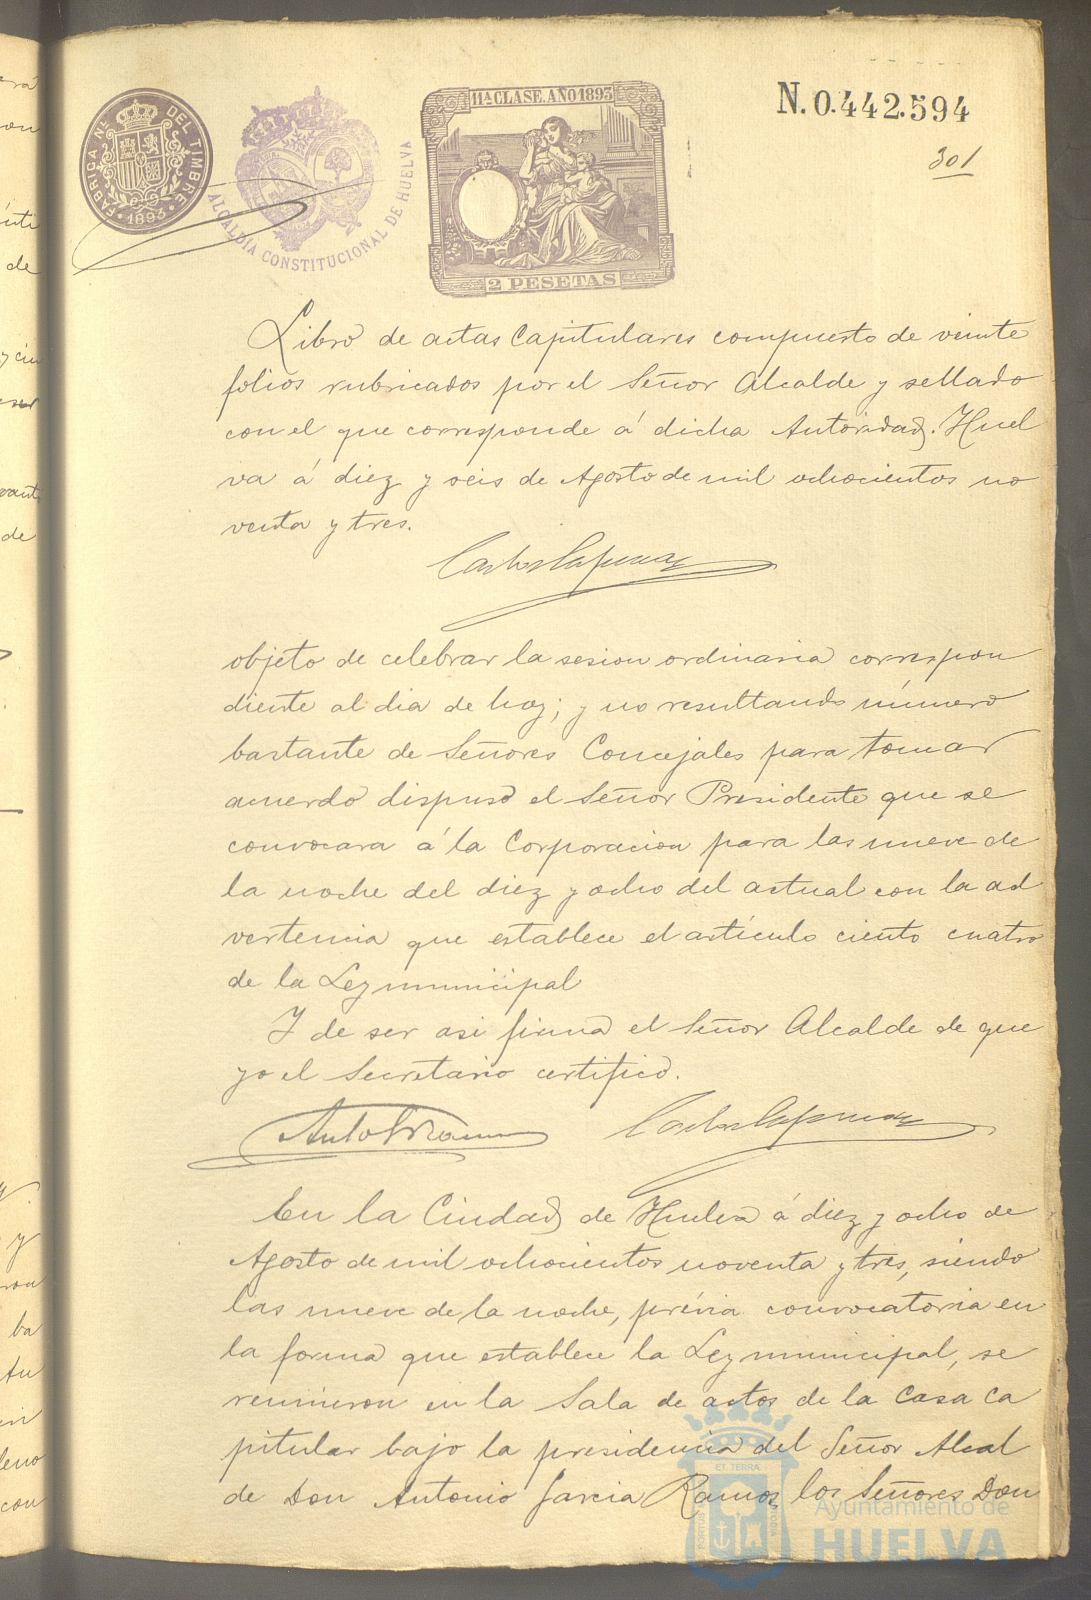 FABRICA Nal. DEL TIMBRE
1893
ALCALDÍA CONSTITUCIONAL DE HUELVA
11ª CLASE. AÑO 1893
2 PESETAS
N.0.442.594
301
Libro de actas Capitulares compuesto de veinte
folios rubricados por el Señor Alcalde y sellado
con el que corresponde á dicha Autoridad. Huel
va á diez y seis de Agosto de mil ochocientos no
venta y tres.
objeto de celebrar la sesion ordinaria correspon
diente al dia de hoy; y no resultando número
bastante de Señores Concejales para tomar
acuerdo dispuso el Señor Presidente que se
convocara á la Corporacion para las nueve de
la noche del diez y ocho del actual con la ad
vertencia que establece el artículo ciento cuatro
de la Ley municipal
Y de ser asi firma el Señor Alcalde de que
yo el Secretario certifico.
En la Ciudad de Huelva á diez y ocho de
Agosto de mil ochocientos noventa y tres, siendo
las nueve de la noche, prévia convocatoria en
la forma que establece la Ley municipal, se
reunieron en la Sala de actos de la Casa Ca
pitular bajo la presidencia del Señor Alcal
de Don Antonio Garcia Ramos, los Señores Don
Ayuntamiento de
HUELVA